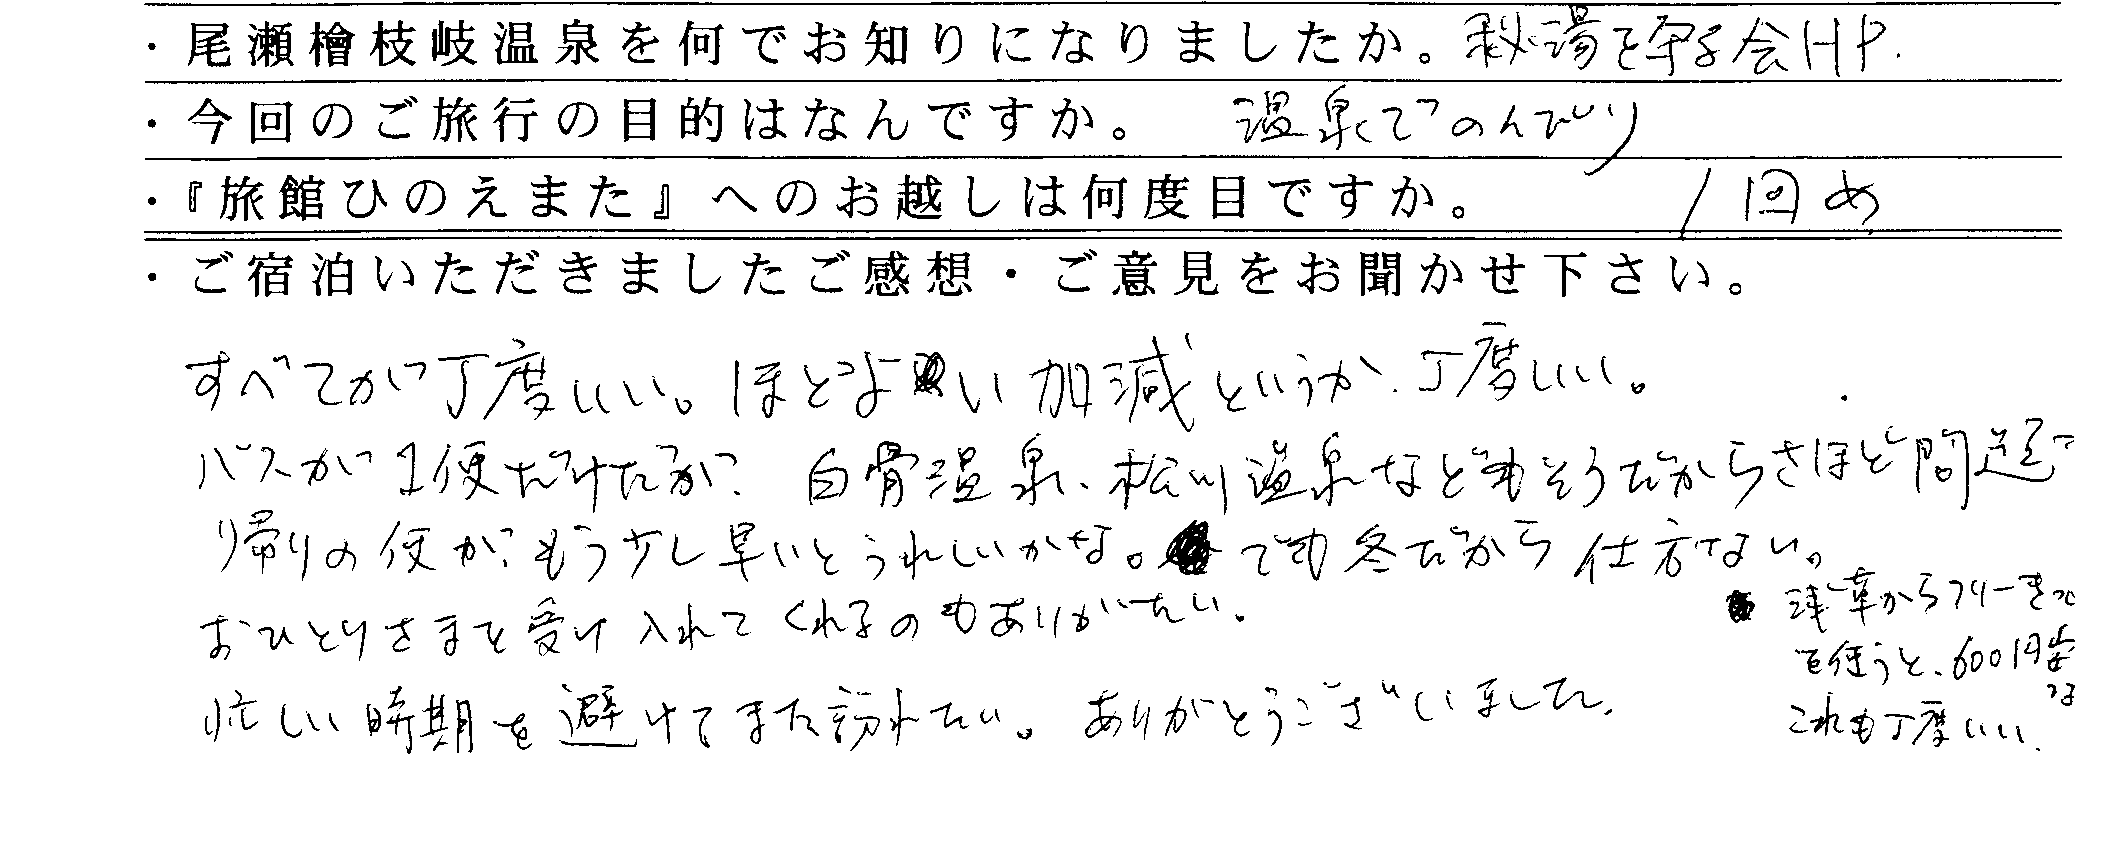 ・尾瀬檜枝岐温泉を何でお知りになりましたか。秘湯を守る会HP.
・今回のご旅行の目的はなんですか。 温泉でのんびり
・『旅館ひのえまた』へのお越しは何度目ですか。 1回め
・ご宿泊いただきましたご感想・ご意見をお聞かせ下さい。
すべてが丁度いい。ほどよい加減というか、丁度いい。
バスが1便だけだが、白骨温泉、松川温泉などもそうだからさほど問題で
帰りの便がもう少し早いとうれしいかな。でも冬だから仕方ない。
おひとりさまを受け入れてくれるのもありがたい。
忙しい時期を避けてまた訪れたい。ありがとうございました。
浅草からフリーきっぷ
を使うと、600円安
これも丁度いい。